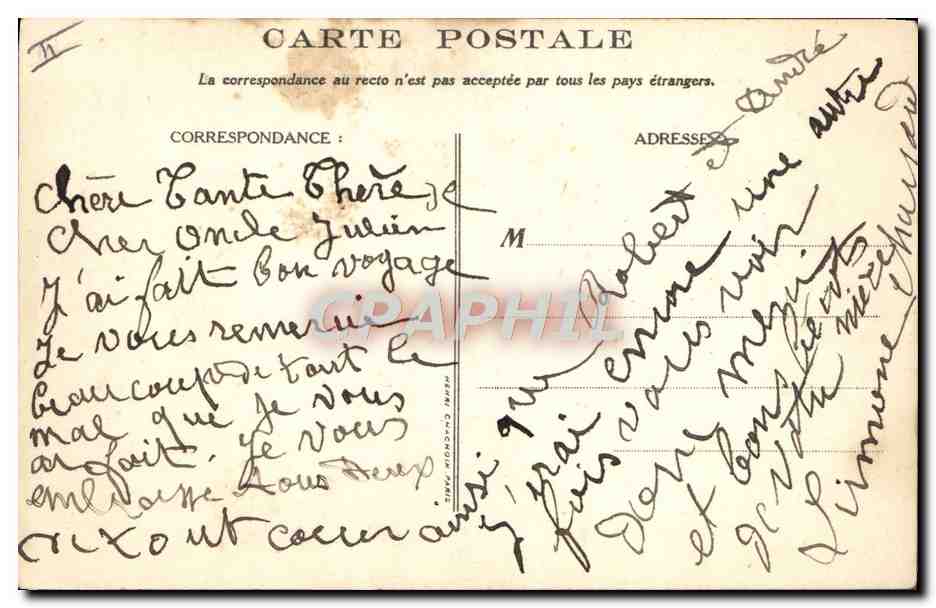 II
CARTE POSTALE
La correspondance au recto n'est pas acceptée par tous les pays étrangers.
CORRESPONDANCE :
ADRESSE
M
Chère Tante Thérèse
Cher Oncle Julien
J'ai fait bon voyage
Je vous remercie
beaucoup de tout le
mal que je vous
ai fait. Je vous
embrasse tous deux
cœur ainsi que Robert et André
J'irai une autre
fois vous voir
Donc merci
et bonté
de votre nièce
Simone
HENRI CHACHOIN PARIS
CPAPHIL